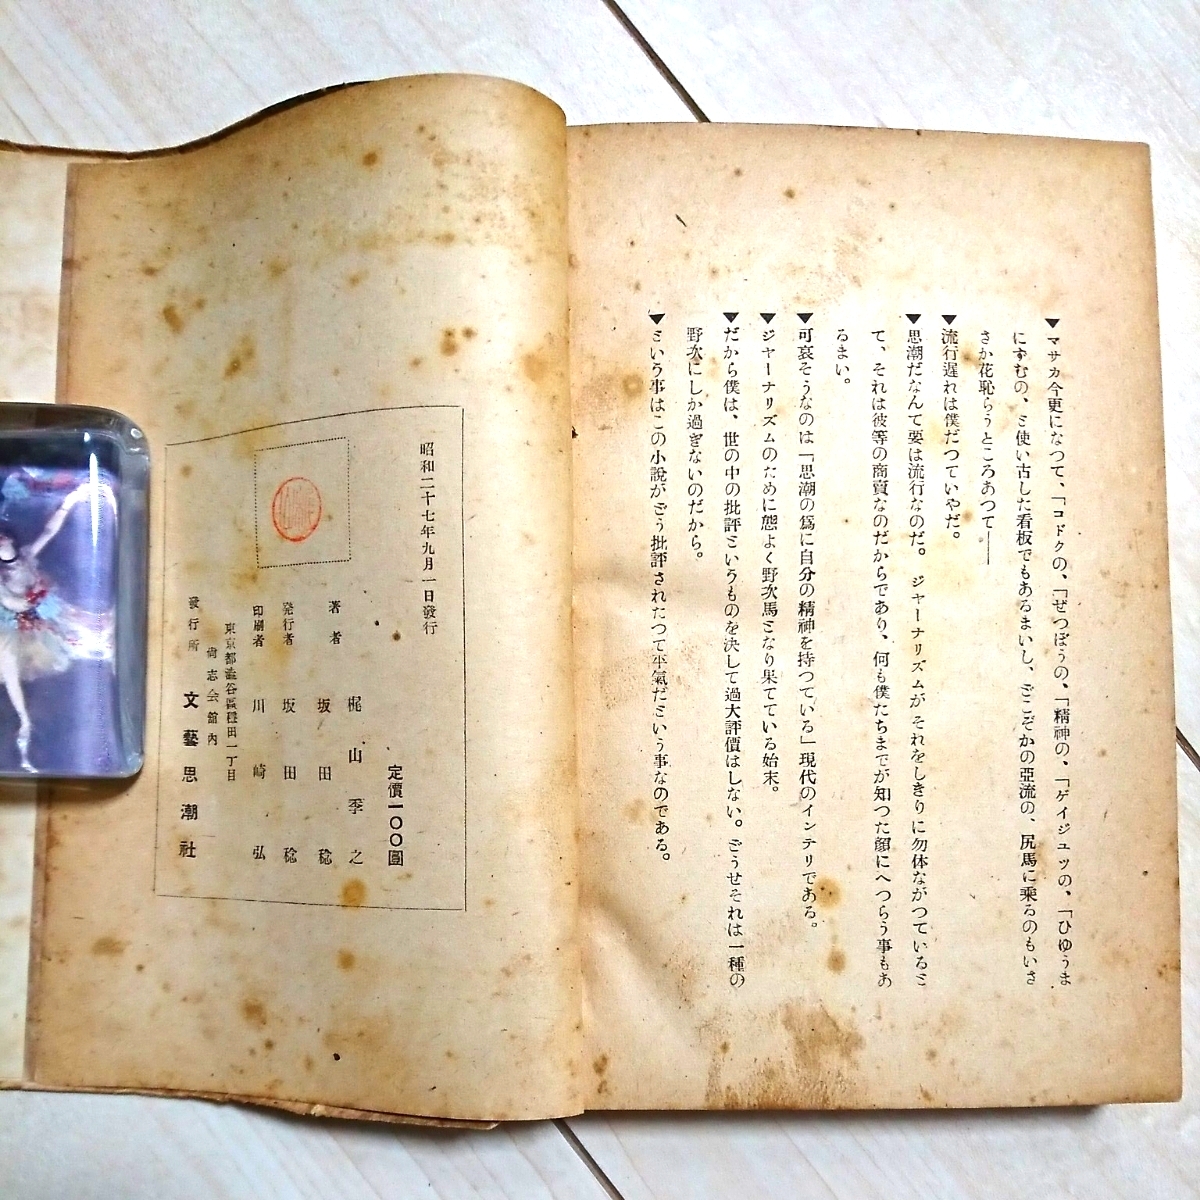 ▼マサカ今更になつて、「コドクの、「ぜつぼうの、「精神の、「ゲイジュツの、「ひゆうま
にずむの、と使い古した看板でもあるまいし、どこぞかの亞流の、尻馬に乘るのもいさ
さか花恥らうところあつて――
▼流行遅れは僕だつていやだ。
▼思潮だなんて要は流行なのだ。ジャーナリズムがそれをしきりに勿体ながつていると
て、それは彼等の商賣なのだからであり、何も僕たちまでが知つた顔にへつらう事もあ
るまい。
▼可哀そうなのは「思潮の爲に自分の精神を持つている」現代のインテリである。
▼ジャーナリズムのために態よく野次馬となり果てている始末。
▼だから僕は、世の中の批評というものを決して過大評價はしない。どうせそれは一種の
野次にしか過ぎないのだから。
▼という事はこの小説がどう批評されたつて平氣だという事なのである。
昭和二十七年九月一日發行
定價一〇〇圓
著者 梶山季之
坂田稔
発行者 坂田稔
印刷者 川崎弘
東京都澁谷區穩田一丁目
尙志会舘內
發行所 文藝思潮社